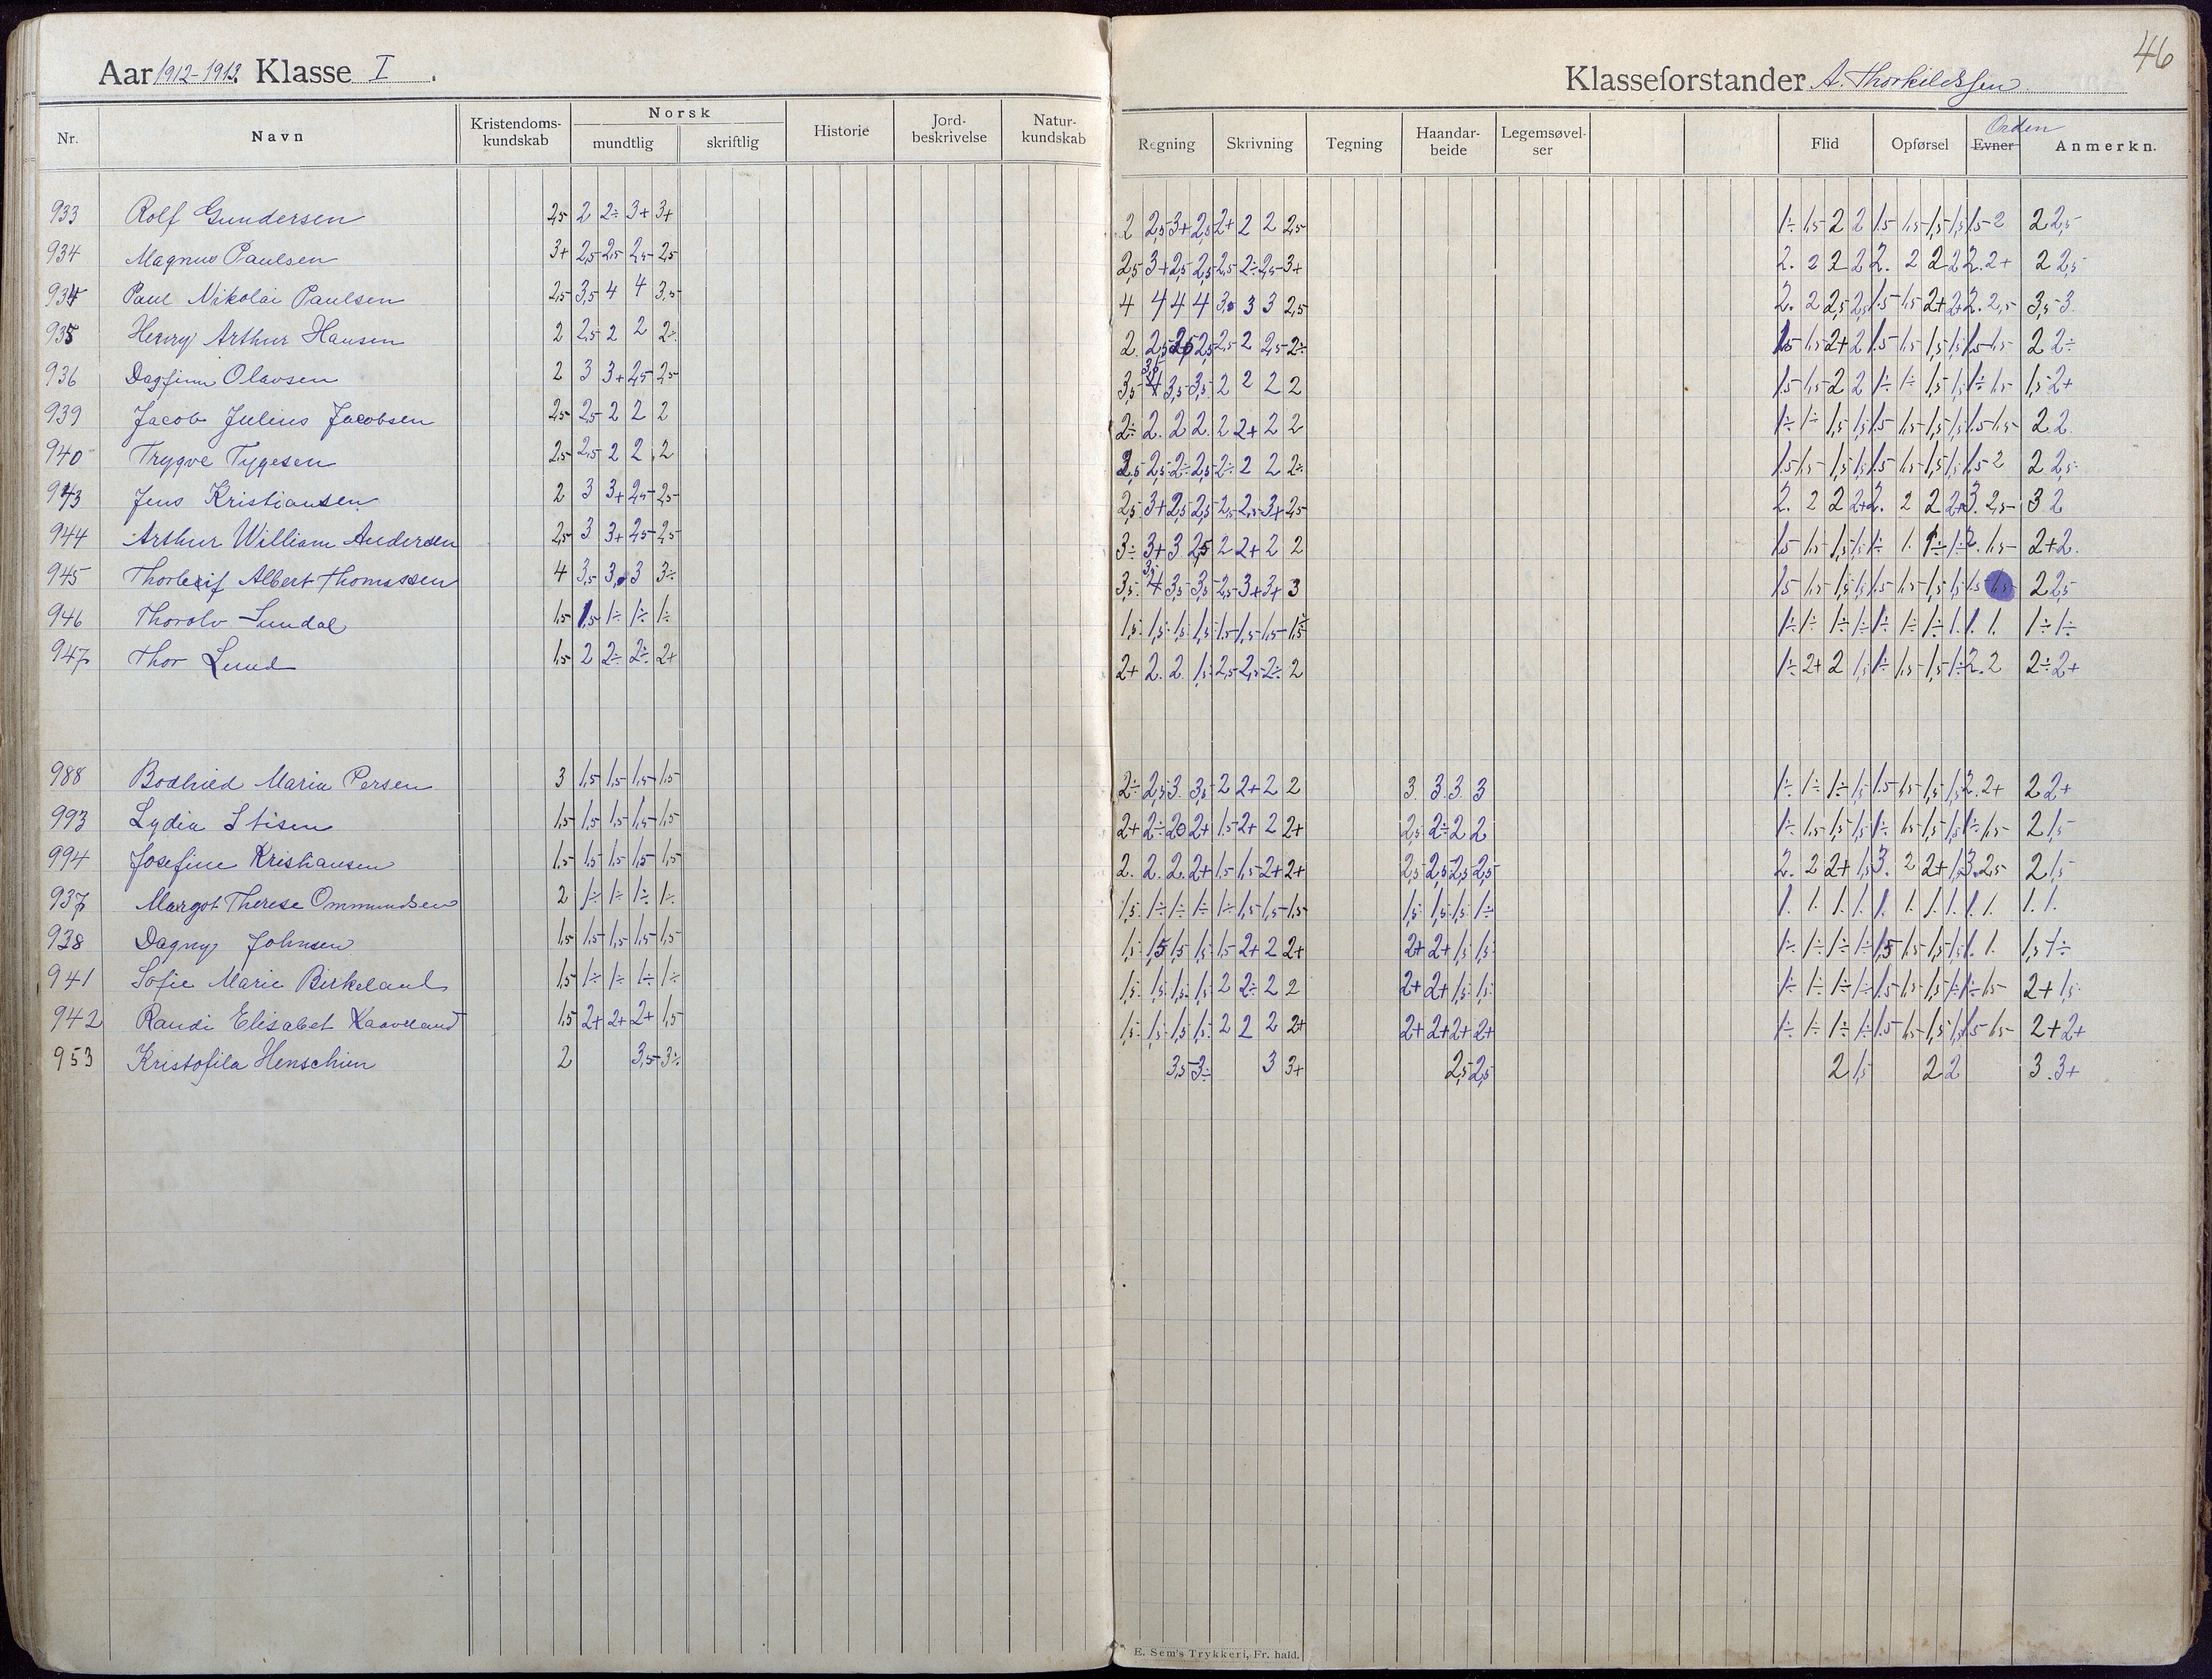 46
Aar 1912-1913. Klasse I.
Klasseforstander A. Thorkildssen
Nr. Navn Kristendoms-kundskab Norsk mundtlig skriftlig Historie Jord-beskrivelse Natur-kundskab Regning Skrivning Tegning Haandar-beide Legemsøvel-ser Flid Opførsel Evner Orden Anmerkn.
933 Rolf Gundersen 2,5 2 2÷ 3+ 3+ 2 2,5 3+ 2,5 2+ 2 2 2,5 1÷ 1,5 2 2 1.5 1,5 1,5 1,5 1.5 2 2 2,5
934 Magnus Paulsen 3+ 2,5 2,5 2,5 2,5 2,5 3+ 2,5 2,5 2,5 2÷ 2,5 3+ 2. 2 2 2 2. 2 2 2 2. 2+ 2 2,5
934 Paul Nikolai Paulsen 2,5 3,5 4 4 3,5 4 4 4 4 3. 3 3 2,5 2. 2 2,5 2,5 1.5 1,5 2+ 2+ 2. 2,5 3,5 3.
935 Henry Arthur Hansen 2 2,5 2 2 2÷ 2. 2,5 2,5 2,5 2,5 2 2,5 2÷ 1.5 1,5 2+ 2 1.5 1,5 1,5 1,5 1.5 1,5 2 2÷
936 Dagfinn Olavsen 2 3 3+ 2,5 2,5 3,5 4 3,5 3,5 2 2 2 2 1.5 1,5 2 2 1÷ 1÷ 1,5 1,5 1÷ 1,5 1,5 2+
939 Jacob Julius Jacobsen 2,5 2,5 2 2 2 2÷ 2. 2 2. 2 2+ 2 2 1÷ 1÷ 1,5 1,5 1.5 1,5 1,5 1,5 1.5 1,5 2. 2.
940 Trygve Tygesen 2,5 2,5 2 2 2 2,5 2,5 2÷ 2,5 2÷ 2 2 2÷ 1.5 1,5 1,5 1,5 1.5 1,5 1,5 1,5 1.5 2 2 2,5
943 Jens Kristiansen 2 3 3+ 2,5 2,5 2,5 3+ 2,5 2,5 2,5 2,5 3+ 2,5 2. 2 2 2+ 2. 2 2 2+ 3. 2,5 3 2
944 Arthur William Andersen 2,5 3 3+ 2,5 2,5 3÷ 3+ 3 2,5 2 2+ 2 2 1.5 1,5 1,5 1,5 1÷ 1. 1÷ 1÷ 2. 1,5 2+ 2.
945 Thorleif Albert Thomassen 4 3,5 3. 3 3÷ 3,5 4 3,5 3,5 2,5 3+ 3+ 3 1.5 1,5 1,5 1,5 1.5 1,5 1,5 1,5 1.5 1,5 2 2,5
946 Thorolv Sundal 1,5 1,5 1÷ 1÷ 1÷ 1,5 1,5 1,5 1,5 1,5 1,5 1,5 1,5 1÷ 1÷ 1÷ 1÷ 1÷ 1÷ 1÷ 1. 1. 1. 1÷ 1÷
947 Thor Lund 1,5 2 2÷ 2÷ 2+ 2+ 2. 2 1,5 2,5 2,5 2÷ 2 1÷ 2+ 2 1,5 1÷ 1,5 1,5 1÷ 2. 2 2÷ 2+
988 Bodhild Maria Persen 3 1,5 1,5 1,5 1,5 2÷ 2,5 3. 3,5 2 2+ 2 2 3. 3. 3. 3 1÷ 1÷ 1÷ 1,5 1.5 1,5 1,5 1,5 2. 2+ 2 2+
993 Lydia Stisen 1,5 1,5 1,5 1,5 1,5 2+ 2÷ 2 2+ 1.5 2+ 2 2+ 2,5 2÷ 2 2 1÷ 1,5 1,5 1,5 1÷ 1,5 1,5 1,5 1÷ 1,5 2 1,5
994 Josefine Kristiansen 1,5 1,5 1,5 1,5 1,5 2. 2. 2. 2+ 1,5 1,5 2+ 2+ 2,5 2,5 2,5 2,5 2. 2 2+ 1,5 3. 2 2+ 1,5 3. 2,5 2 1,5
937 Margot Therese Ommundsen 2 1÷ 1÷ 1÷ 1÷ 1,5 1÷ 1÷ 1÷ 1÷ 1,5 1,5 1,5 1,5 1,5 1,5 1÷ 1. 1. 1. 1. 1. 1. 1. 1. 1. 1. 1. 1.
938 Dagny Johnsen 1,5 1,5 1,5 1,5 1,5 1,5 1,5 1,5 1,5 1,5 2+ 2 2+ 2+ 2+ 1,5 1,5 1÷ 1÷ 1÷ 1÷ 1,5 1,5 1,5 1,5 1. 1. 1,5 1÷
941 Sofie Marie Birkeland 1,5 1÷ 1÷ 1÷ 1÷ 1,5 1,5 1,5 1,5 2 2÷ 2 2 2+ 2+ 1,5 1,5 1÷ 1÷ 1÷ 1÷ 1.5 1,5 1,5 1÷ 1÷ 1,5 2+ 1,5
942 Randi Elisabet Kaaveland 1,5 2+ 2+ 2+ 1,5 1,5 1,5 1,5 1,5 2 2 2 2+ 2+ 2+ 2+ 2+ 1÷ 1÷ 1÷ 1÷ 1.5 1,5 1,5 1,5 1.5 1,5 2+ 2+
953 Kristofila Henschien 2 3,5 3÷ 3,5 3÷ 3 3+ 2,5 2,5 2 1,5 2 2 3. 3+
E. Sem's Trykkeri, Fr. hald.